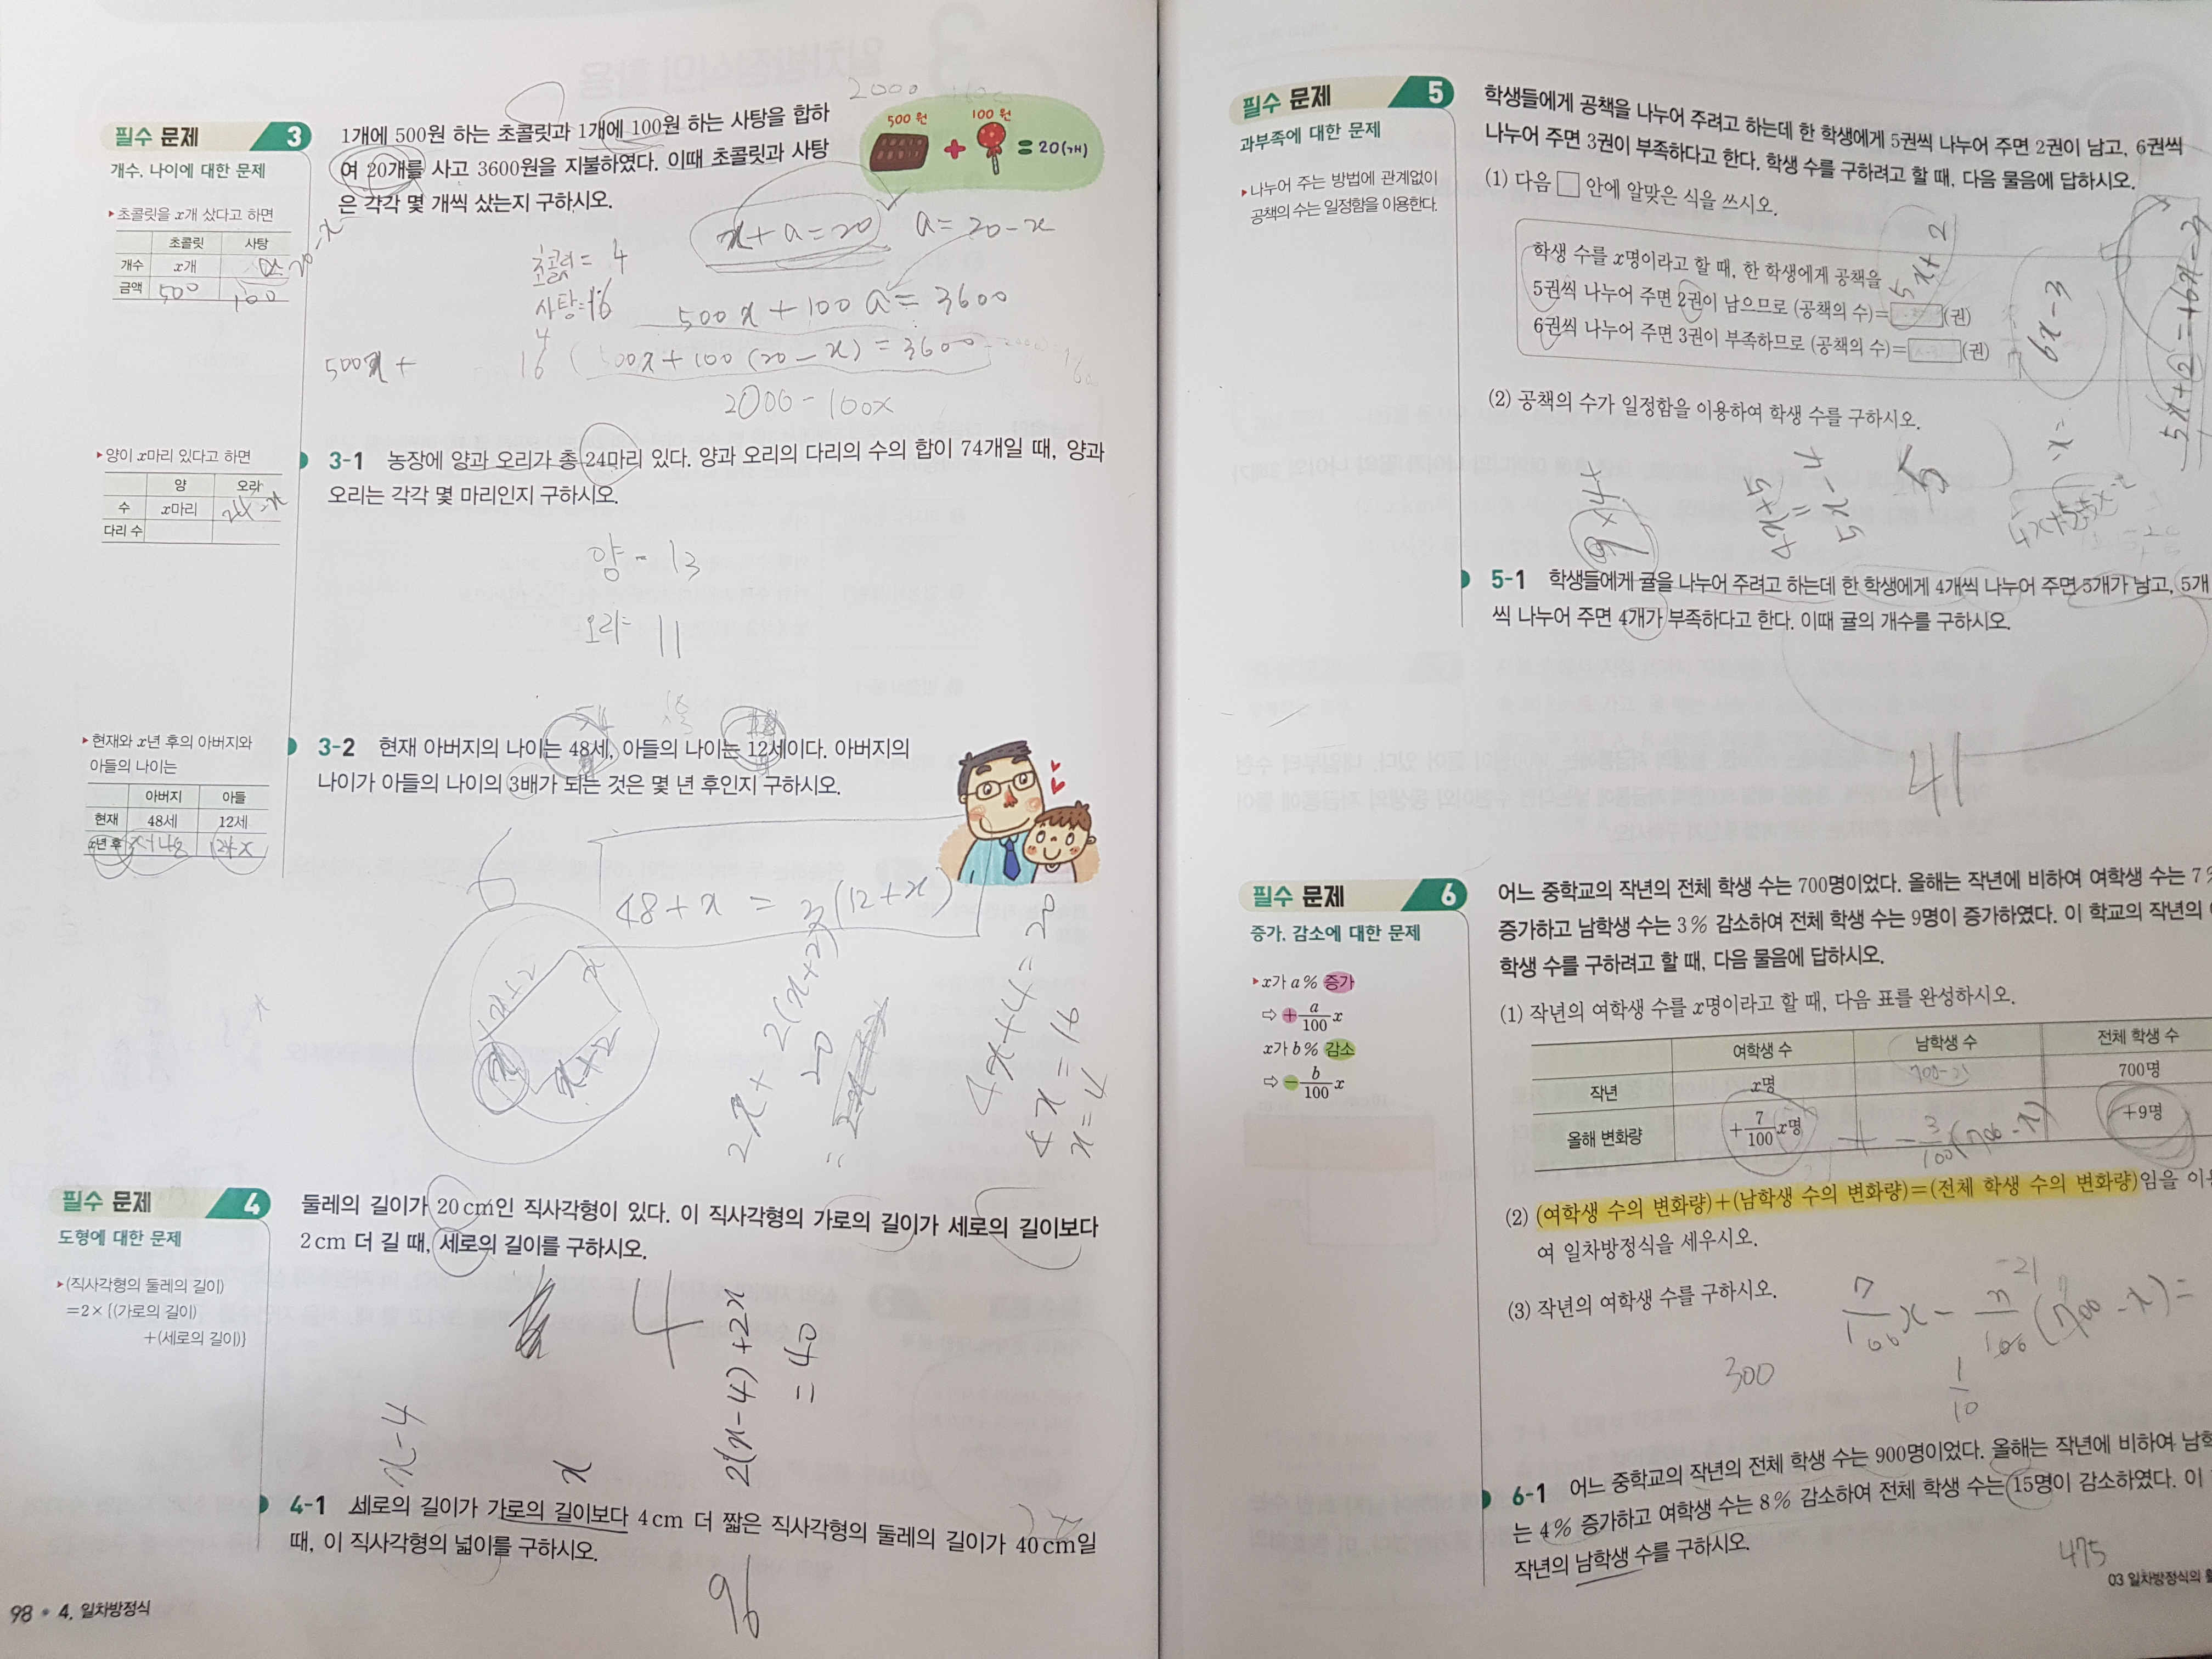 필수 문제 3
개수, 나이에 대한 문제
초콜릿을 x개 샀다고 하면
초콜릿 사탕
개수 x개 20-x
금액 500 100
1개에 500원 하는 초콜릿과 1개에 100원 하는 사탕을 합하
여 20개를 사고 3600원을 지불하였다. 이때 초콜릿과 사탕
은 각각 몇 개씩 샀는지 구하시오.
2000
500원 100원
= 20(개)
x+a=20
a=20-x
초콜릿= 4
사탕=16
500x+100a=3600
500x+
4
16
500x+100(20-x)=3600
2000-100x
양이 x마리 있다고 하면
양 오리
수 x마리 24-x
다리 수
3-1 농장에 양과 오리가 총 24마리 있다. 양과 오리의 다리의 수의 합이 74개일 때, 양과
오리는 각각 몇 마리인지 구하시오.
양-13
오리=11
현재와 x년 후의 아버지와
아들의 나이는
아버지 아들
현재 48세 12세
x년 후 x+48 12+x
3-2 현재 아버지의 나이는 48세, 아들의 나이는 12세이다. 아버지의
나이가 아들의 나이의 3배가 되는 것은 몇 년 후인지 구하시오.
6
48+x=3(12+x)
x+2
x
x
x+2
2x+2(x+2)
=20
4x+4=20
4x=16
x=4
필수 문제 4
도형에 대한 문제
(직사각형의 둘레의 길이)
=2×{(가로의 길이)
+(세로의 길이)}
둘레의 길이가 20cm인 직사각형이 있다. 이 직사각형의 가로의 길이가 세로의 길이보다
2cm 더 길 때, 세로의 길이를 구하시오.
4
x-4
x
2(x-4)+2x
=40
4-1 세로의 길이가 가로의 길이보다 4cm 더 짧은 직사각형의 둘레의 길이가 40cm일
때, 이 직사각형의 넓이를 구하시오.
96
98 4. 일차방정식
필수 문제 5
과부족에 대한 문제
나누어 주는 방법에 관계없이
공책의 수는 일정함을 이용한다.
학생들에게 공책을 나누어 주려고 하는데 한 학생에게 5권씩 나누어 주면 2권이 남고, 6권씩
나누어 주면 3권이 부족하다고 한다. 학생 수를 구하려고 할 때, 다음 물음에 답하시오.
(1) 다음 □ 안에 알맞은 식을 쓰시오.
학생 수를 x명이라고 할 때, 한 학생에게 공책을
5권씩 나누어 주면 2권이 남으므로 (공책의 수)=□(권)
6권씩 나누어 주면 3권이 부족하므로 (공책의 수)=□(권)
5x+2
6x-3
5x+2=6x-3
(2) 공책의 수가 일정함을 이용하여 학생 수를 구하시오.
5
9
4x+5
=
5x-4
5-1 학생들에게 귤을 나누어 주려고 하는데 한 학생에게 4개씩 나누어 주면 5개가 남고, 5개
씩 나누어 주면 4개가 부족하다고 한다. 이때 귤의 개수를 구하시오.
41
필수 문제 6
증가, 감소에 대한 문제
x가 a% 증가
⇨ +a/100 x
x가 b% 감소
⇨ -b/100 x
어느 중학교의 작년의 전체 학생 수는 700명이었다. 올해는 작년에 비하여 여학생 수는 7%
증가하고 남학생 수는 3% 감소하여 전체 학생 수는 9명이 증가하였다. 이 학교의 작년의
학생 수를 구하려고 할 때, 다음 물음에 답하시오.
(1) 작년의 여학생 수를 x명이라고 할 때, 다음 표를 완성하시오.
여학생 수 남학생 수 전체 학생 수
작년 x명 700-x 700명
올해 변화량 +7/100 x명 -3/100(700-x) +9명
(2) (여학생 수의 변화량)+(남학생 수의 변화량)=(전체 학생 수의 변화량)임을 이용
여 일차방정식을 세우시오.
(3) 작년의 여학생 수를 구하시오.
-21
300
1/10
6-1 어느 중학교의 작년의 전체 학생 수는 900명이었다. 올해는 작년에 비하여 남학
는 4% 증가하고 여학생 수는 8% 감소하여 전체 학생 수는 15명이 감소하였다. 이
작년의 남학생 수를 구하시오.
475
03 일차방정식의